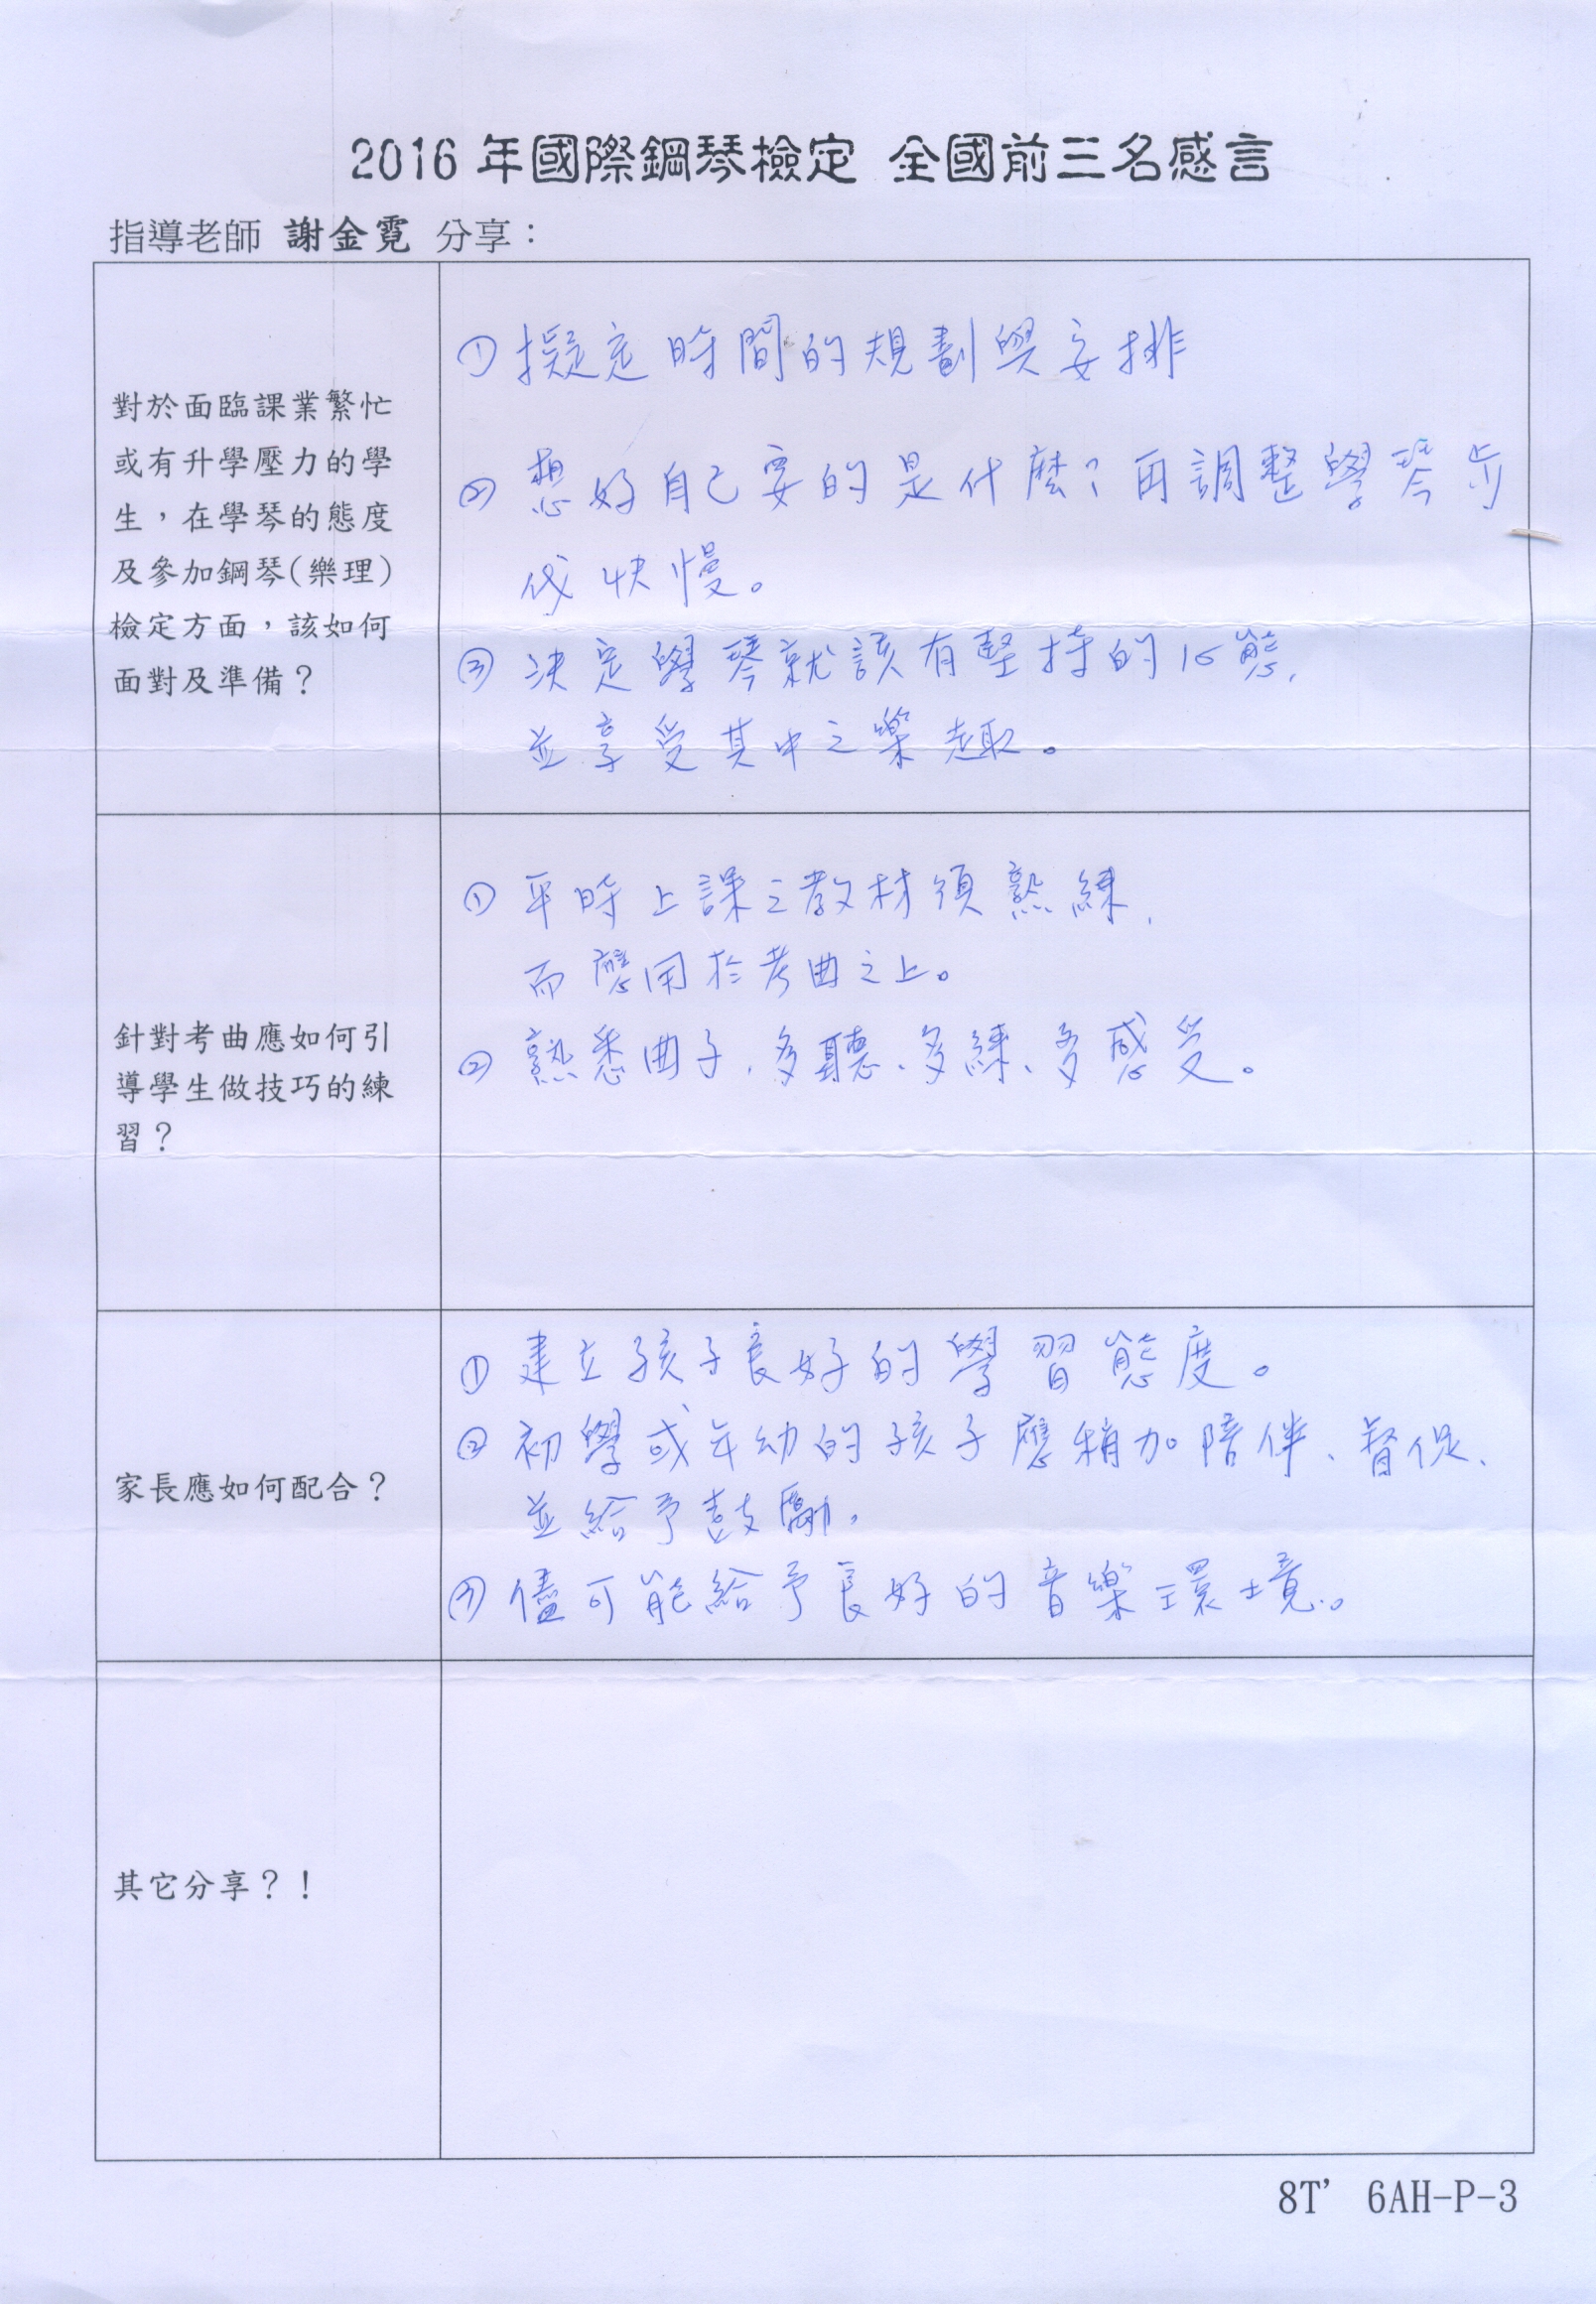 2016 年國際鋼琴檢定 全國前三名感言
指導老師 謝金霓 分享：
對於面臨課業繁忙
或有升學壓力的學
生，在學琴的態度
及參加鋼琴(樂理)
檢定方面，該如何
面對及準備？
①擬定時間的規劃與安排
② 想好自己要的是什麼？再調整學琴步
伐快慢。
③ 決定學琴就該有堅持的心態，
並享受其中之樂趣。
針對考曲應如何引
導學生做技巧的練
習？
① 平時上課之教材須熟練，
而應用於考曲之上。
② 熟悉曲子，多聽、多練、多感受。
家長應如何配合？
① 建立孩子良好的學習態度。
② 初學或年幼的孩子應稍加陪伴、督促、
並給予鼓勵，
③ 儘可能給予良好的音樂環境。
其它分享？！
8T' 6AH-P-3